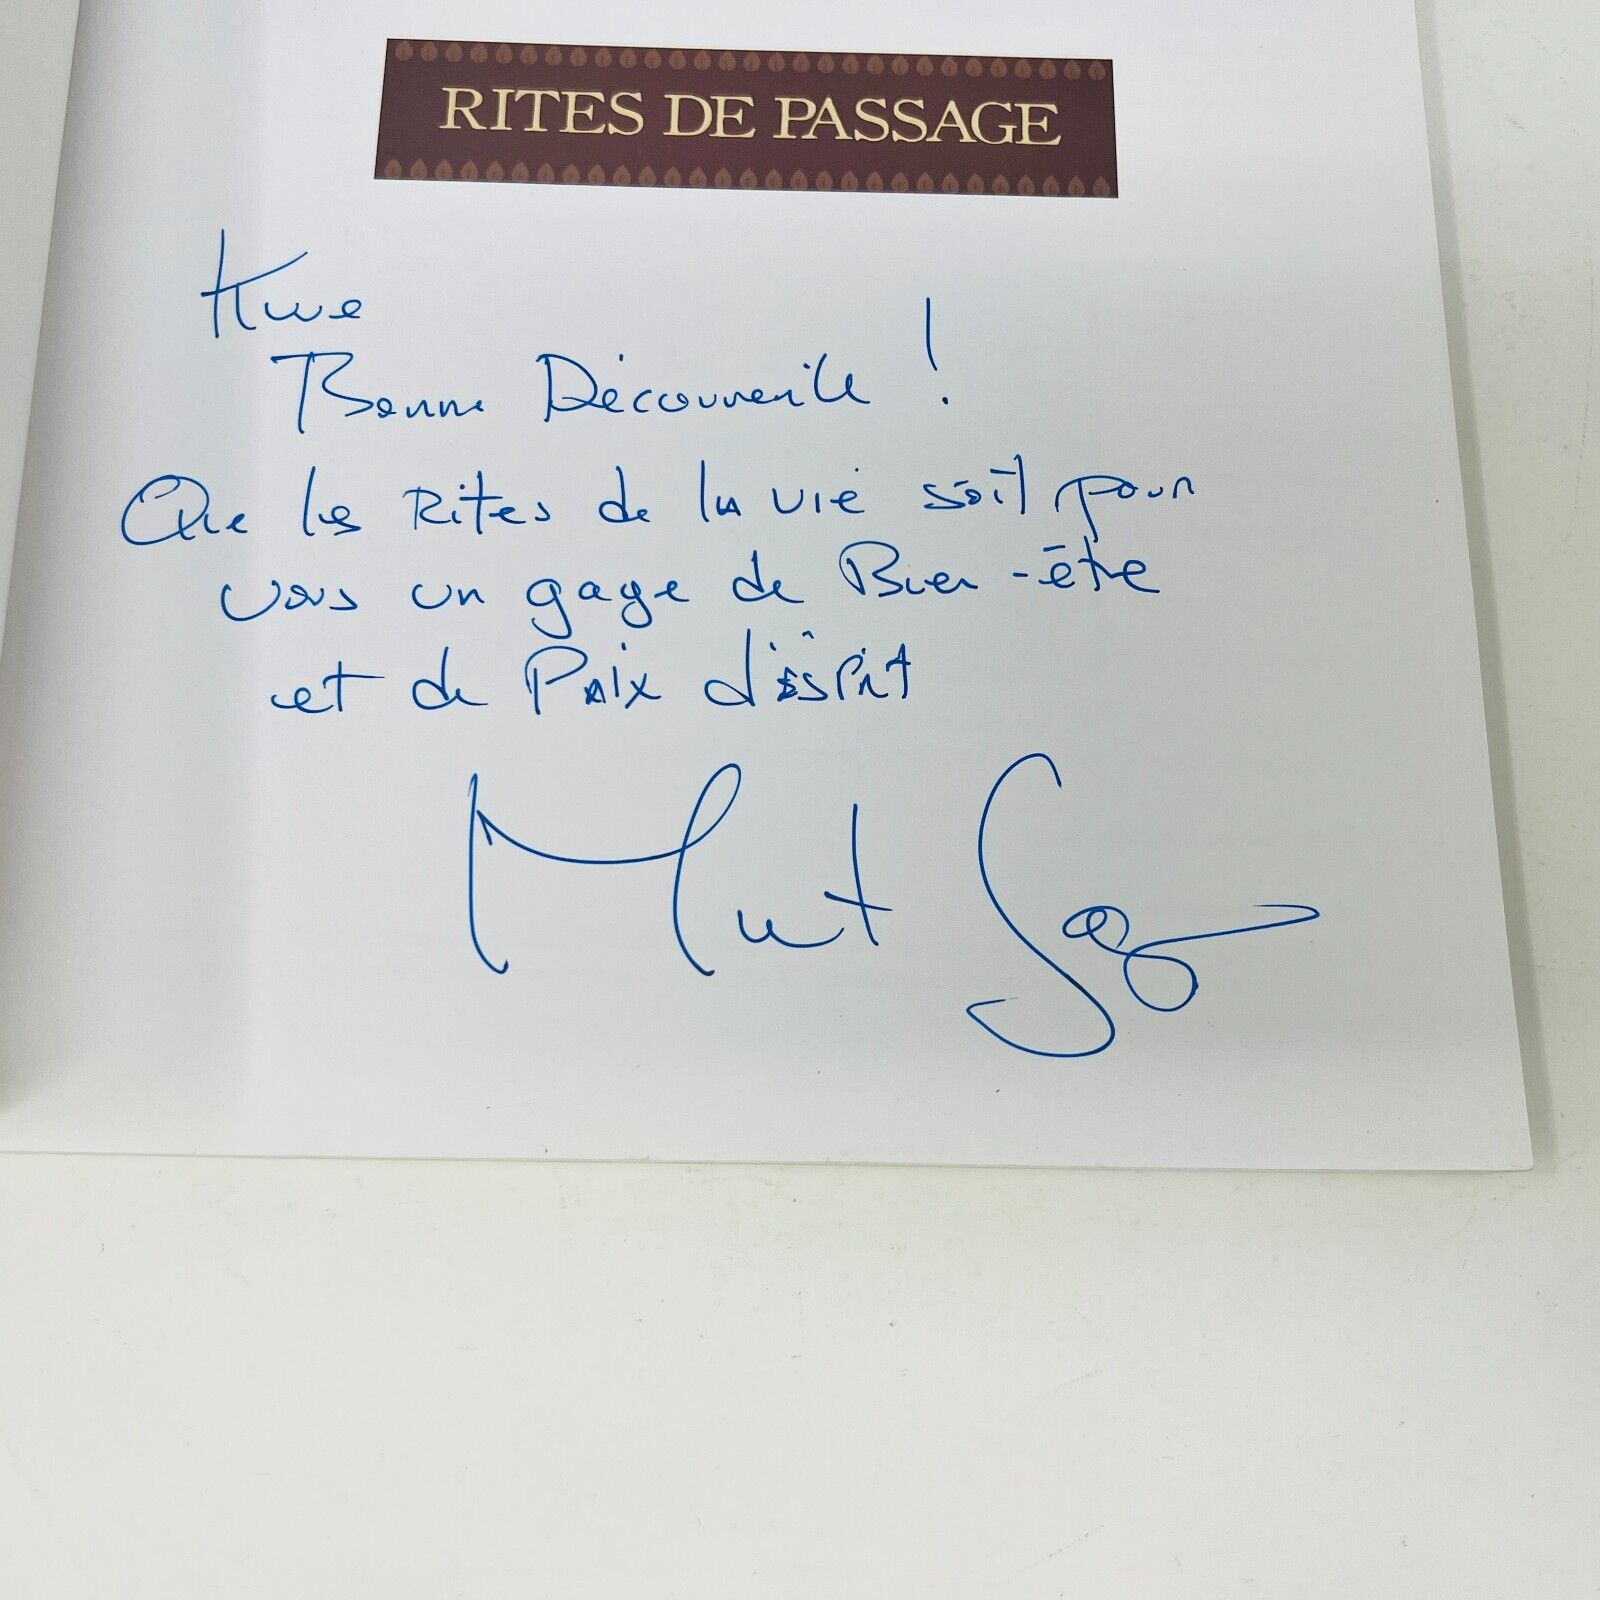 RITES DE PASSAGE
Kwe
Bonne Découverte !
Que les Rites de la vie soit pour
vous un gage de Bien-être
et de Paix d'esprit